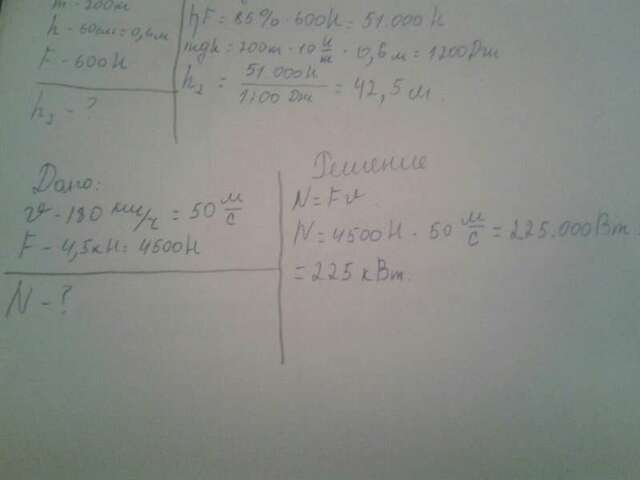 m - 200т
h - 60см = 0,6м
F - 600Н
h₂ - ?
ηF = 85% · 600Н = 51.000Н
mgh = 200т · 10 Н/т · 0,6м = 1200Дж
h₂ = 51000Н / 1200Дж = 42,5м.
Дано:
v - 180 км/ч = 50 м/с
F - 4,5кН = 4500Н
N - ?
Решение
N = Fv
N = 4500Н · 50 м/с = 225.000Вт =
= 225 кВт.